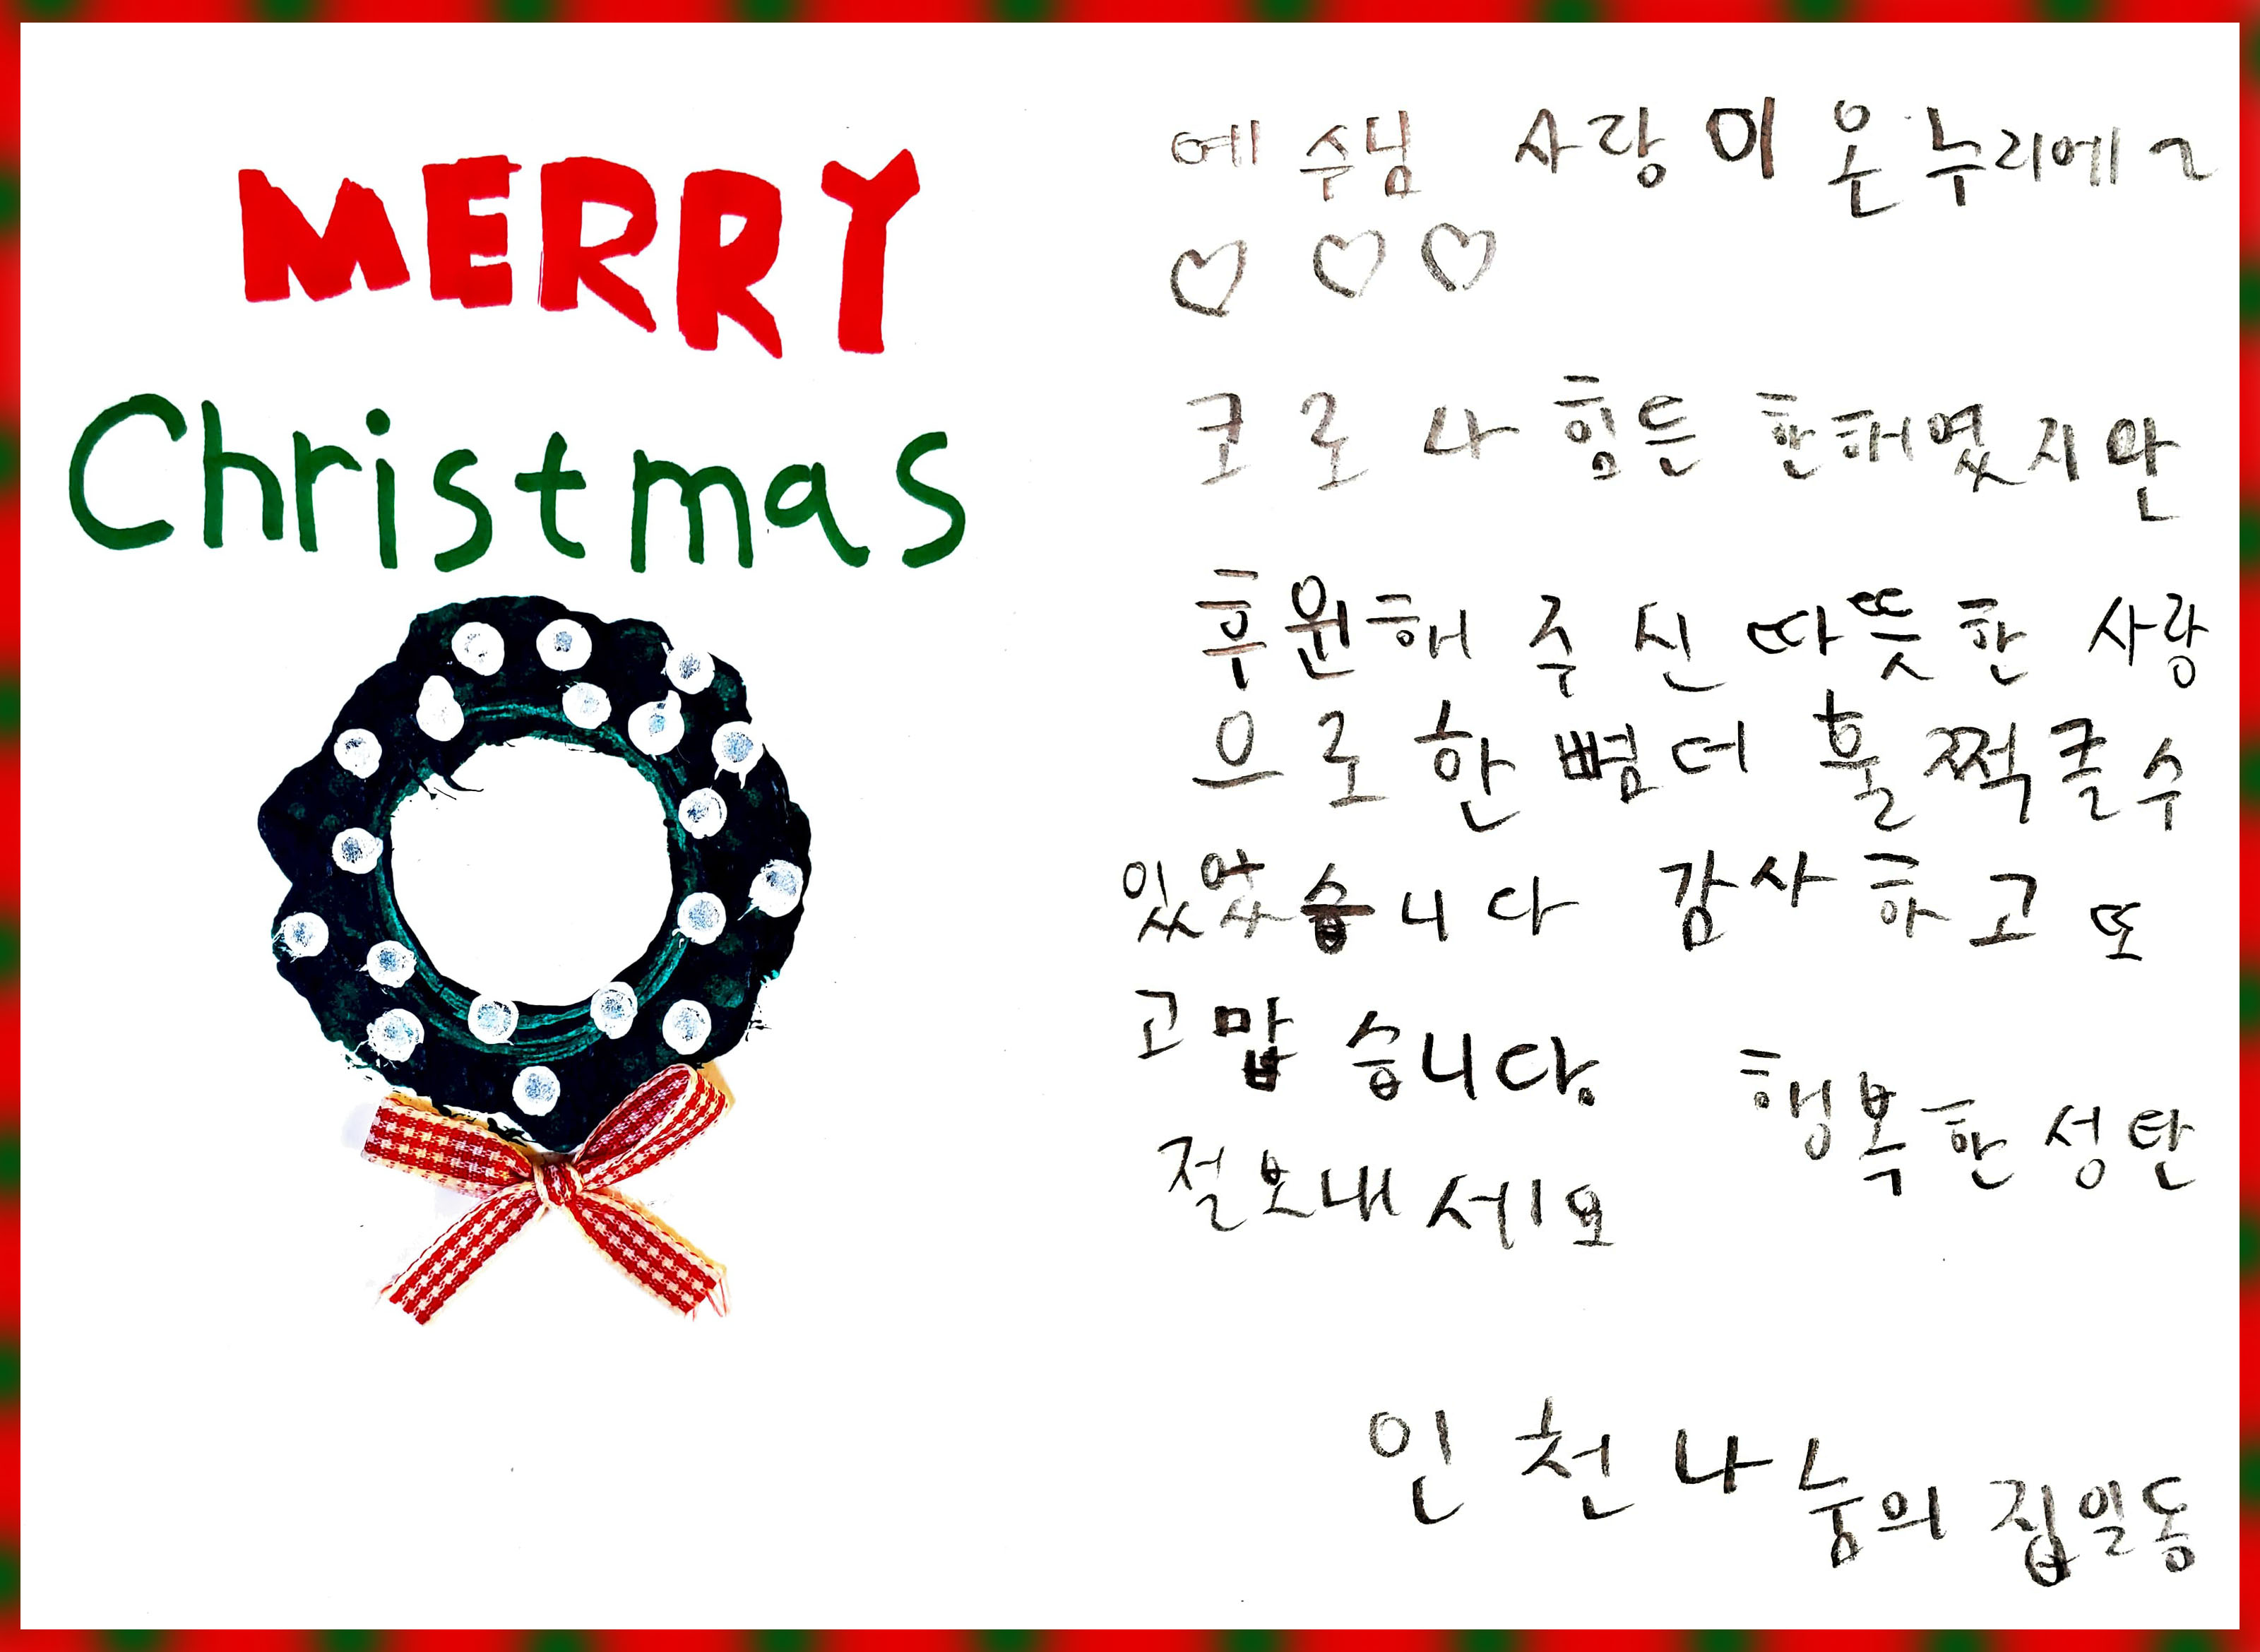 MERRY
Christmas
예수님 사랑이 온누리에~
♡ ♡ ♡
코로나 힘든 한해였지만
후원해 주신 따뜻한 사랑
으로 한뼘더 훌쩍클수
있었습니다 감사하고 또
고맙습니다. 행복한 성탄
절보내세요
인천나눔의 집일동